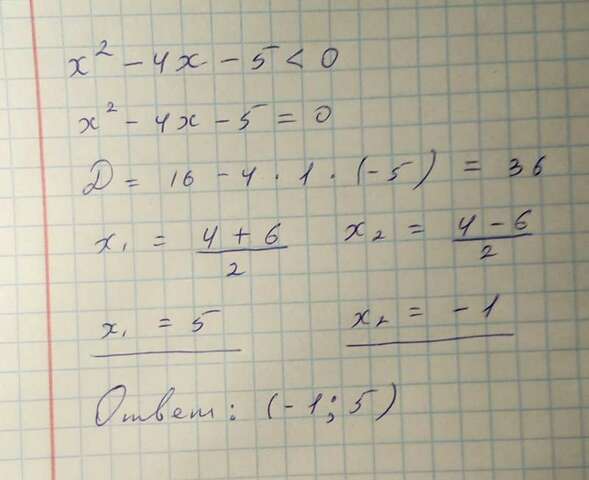 x² - 4x - 5 < 0
x² - 4x - 5 = 0
D = 16 - 4 · 1 · (-5) = 36
x₁ = (4 + 6)/2 x₂ = (4 - 6)/2
x₁ = 5 x₂ = -1
Ответ: (-1; 5)